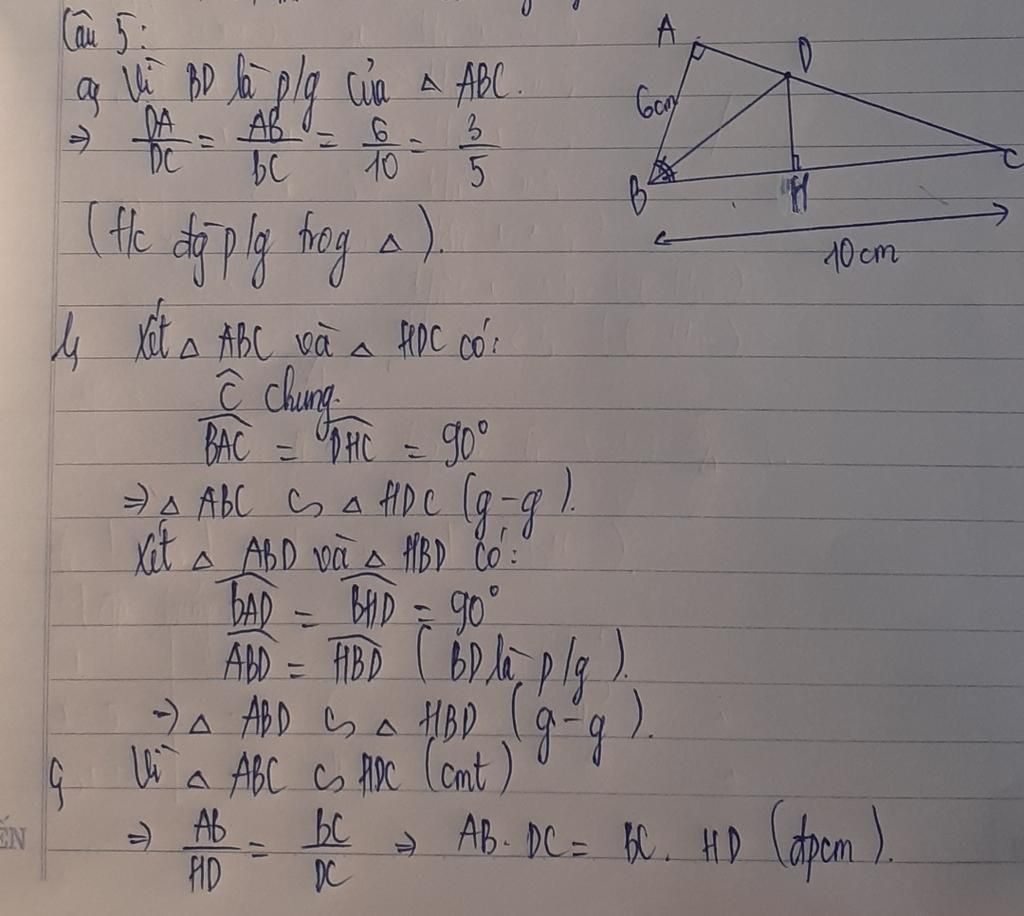 Câu 5:
a, Vì BD là p/g của △ ABC.
⇒ DA/DC = AB/BC = 6/10 = 3/5
(t/c đg p/g trog △).
A
D
6cm
B
H
C
10cm
b, Xét △ ABC và △ HDC có:
Ĉ chung.
BAC = DHC = 90°
⇒ △ ABC ∽ △ HDC (g-g).
Xét △ ABD và △ HBD có:
BAD = BHD = 90°
ABD = HBD (BD là p/g).
⇒ △ ABD ∽ △ HBD (g-g).
c, Vì △ ABC ∽ HDC (cmt)
⇒ AB/HD = BC/DC ⇒ AB. DC = BC. HD (đpcm).
ẾN